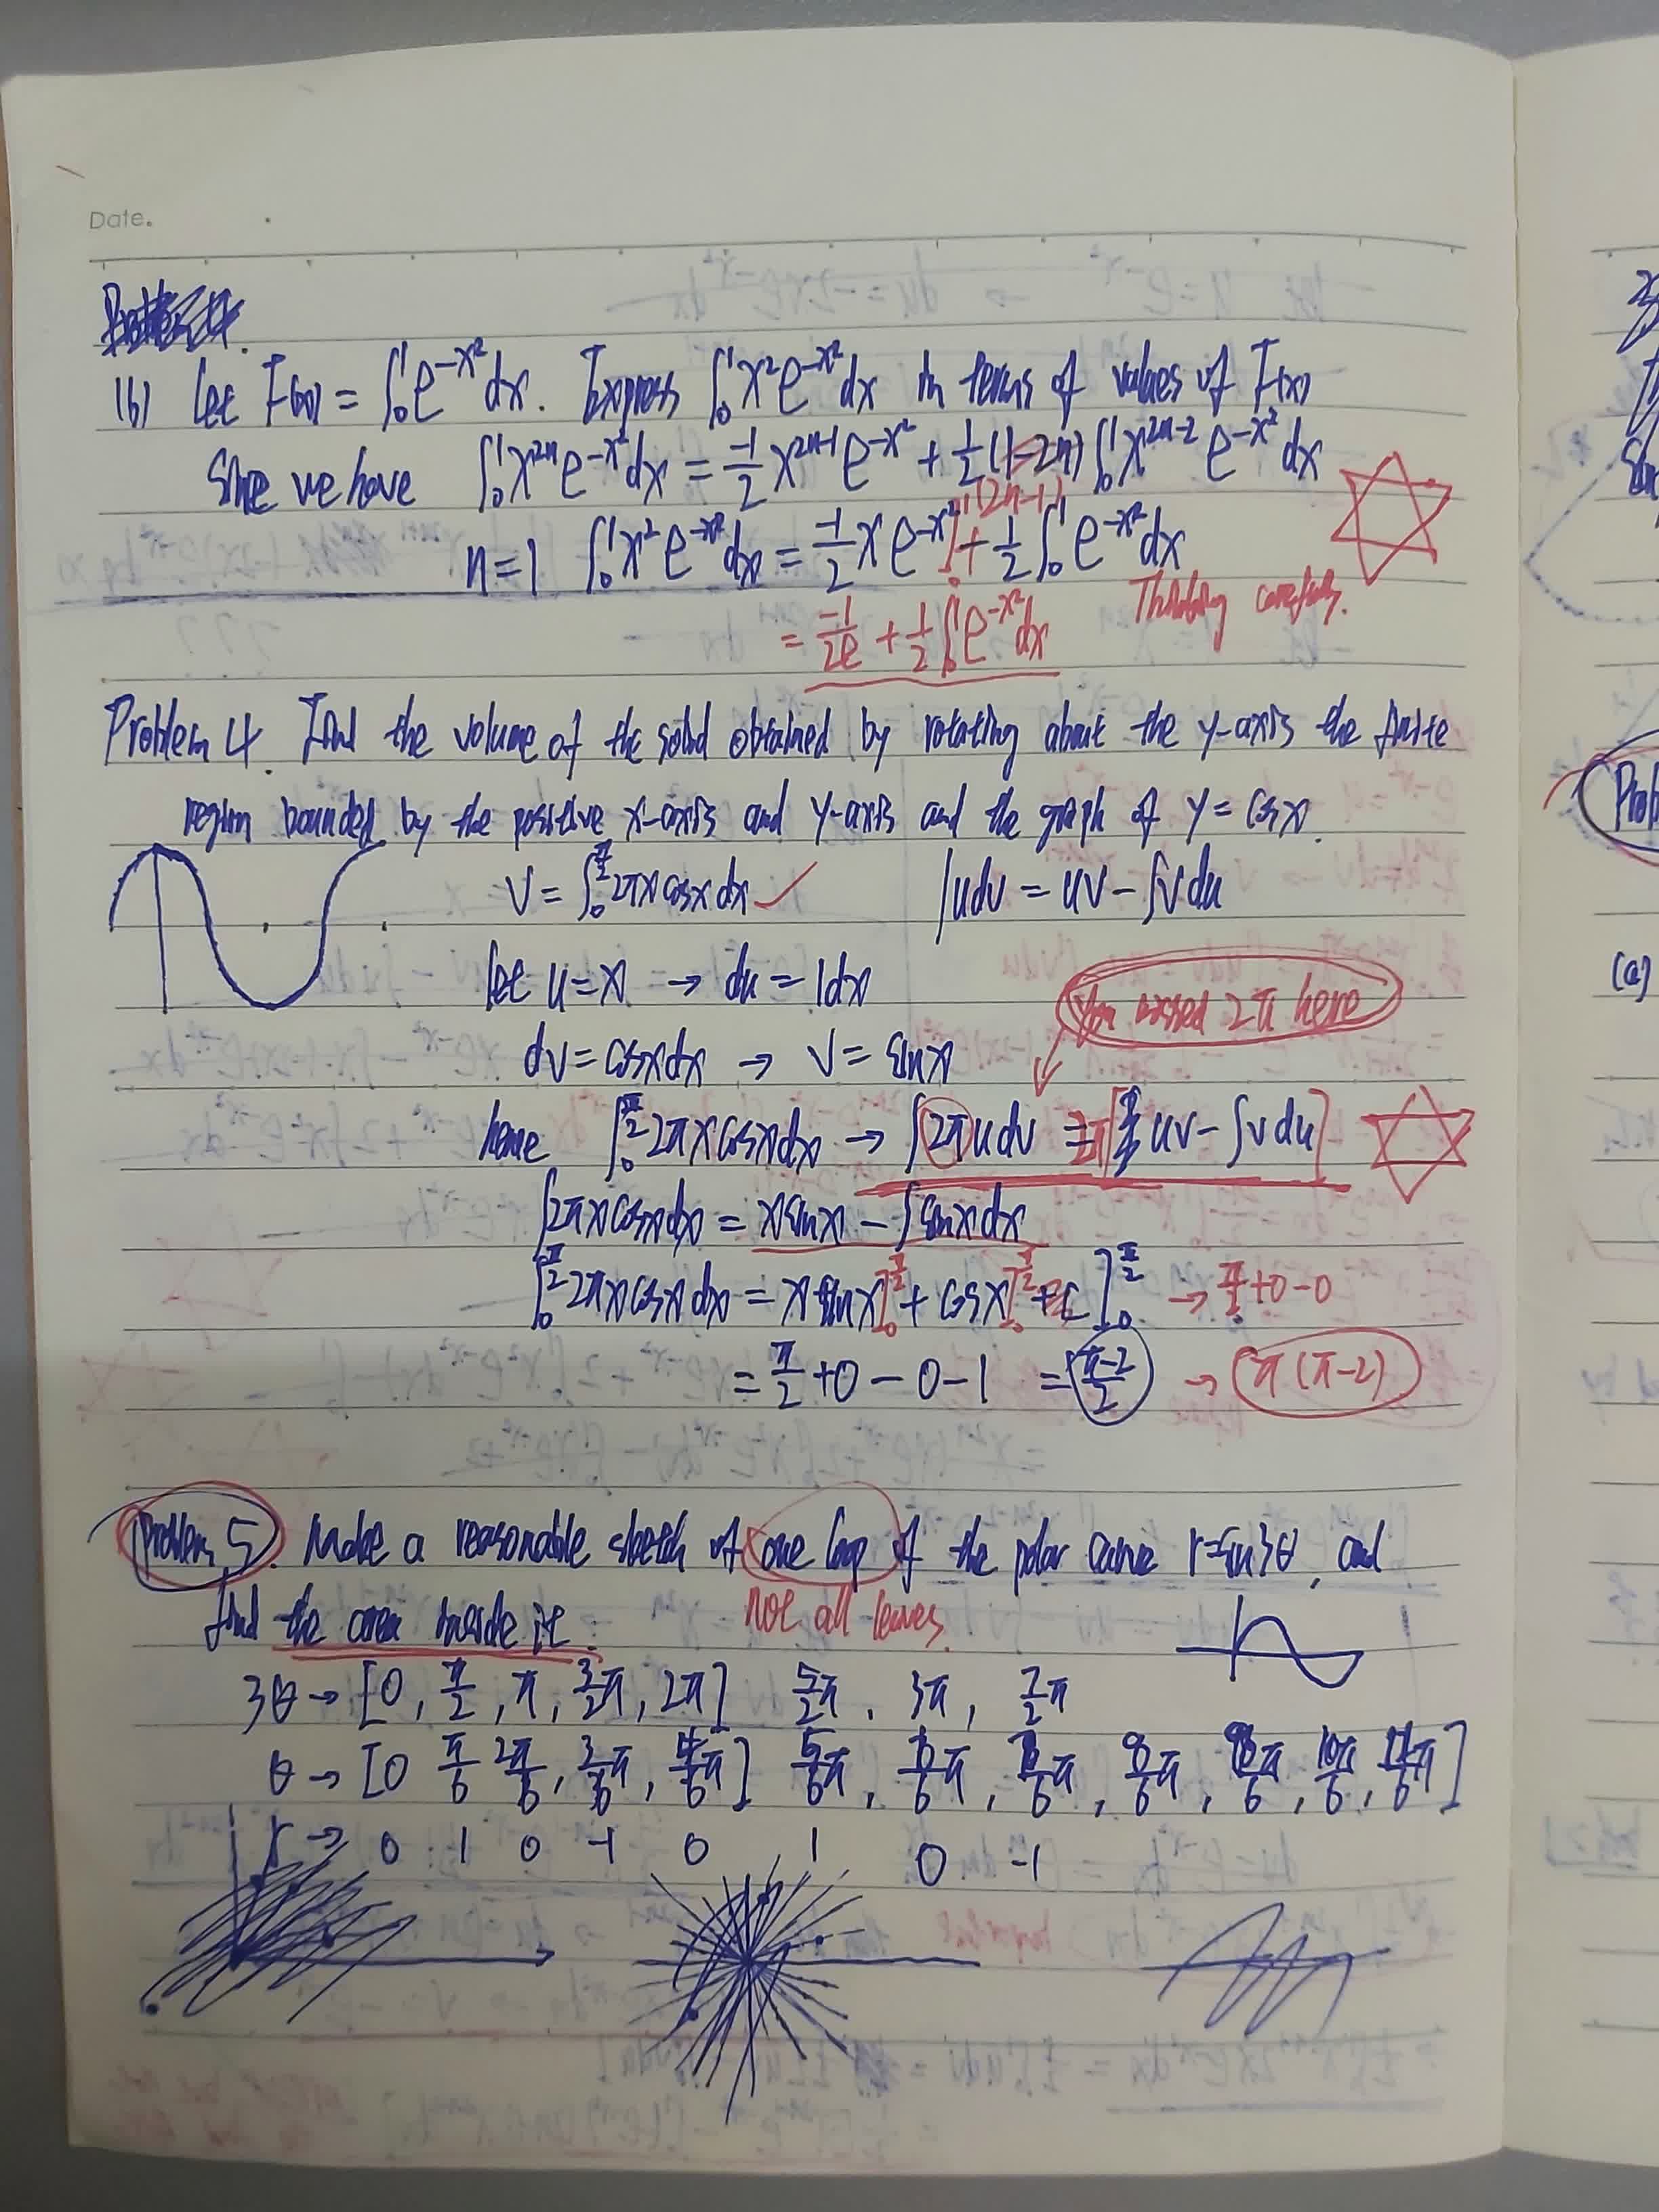 Date.
(b) Let F(x) = ∫₀¹ e^{-x²} dx. Express ∫₀¹ x² e^{-x²} dx in terms of values of F(x)
Since we have ∫₀¹ x^{2n} e^{-x²} dx = -1/2 x^{2n-1} e^{-x²} + 1/2 (1-2n) ∫₀¹ x^{2n-2} e^{-x²} dx
(2n-1)
n=1 ∫₀¹ x² e^{-x²} dx = -1/2 x e^{-x²} ]₀¹ + 1/2 ∫₀¹ e^{-x²} dx
= -1/2e + 1/2 ∫₀¹ e^{-x²} dx
Thinking carefully.
Problem 4. Find the volume of the solid obtained by rotating about the y-axis the finite
region bounded by the positive x-axis and y-axis and the graph of y = cosx.
V = ∫₀^{π/2} 2πx cosx dx ✓ ∫udv = uv - ∫vdu
let u = x → du = 1dx
You missed 2π here
dv = cosxdx → v = sinx
hence ∫₀^{π/2} 2πx cosxdx → ∫2πudv = 2π[uv - ∫vdu]
∫2πx cosxdx = xsinx - ∫sinxdx
∫₀^{π/2} 2πx cosx dx = x sinx]₀^{π/2} + cosx]₀^{π/2} + c ]₀^{π/2} → π/2 + 0 - 0
= π/2 + 0 - 0 - 1 = π-2/2 → π(π-2)
Problem 5. Make a reasonable sketch of one loop of the polar curve r=sin3θ, and
find the area inside it.
Not all leaves.
3θ → [0, π/2, π, 3/2π, 2π] 5/2π, 3π, 7/2π
θ → [0 π/6 2π/6, 3/6π, 4/6π] 5/6π, 6/6π, 7/6π, 8/6π, 9/6π, 10/6π, 11/6π]
r → 0 1 0 -1 0 1 0 -1
Prob
(a)